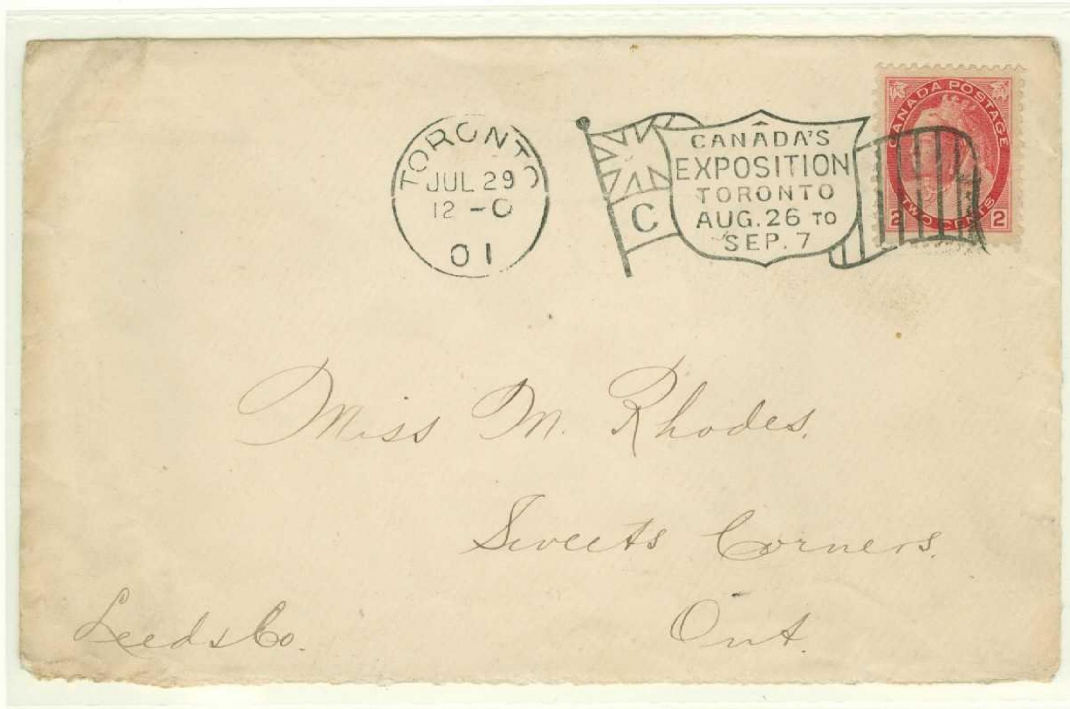 TORONTO
JUL 29
12 - 0
01
C
CANADA'S
EXPOSITION
TORONTO
AUG. 26 TO
SEP. 7
CANADA POSTAGE
2 TWO CENTS 2
Miss M. Rhodes.
Sweets Corners.
Leeds Co.
Ont.